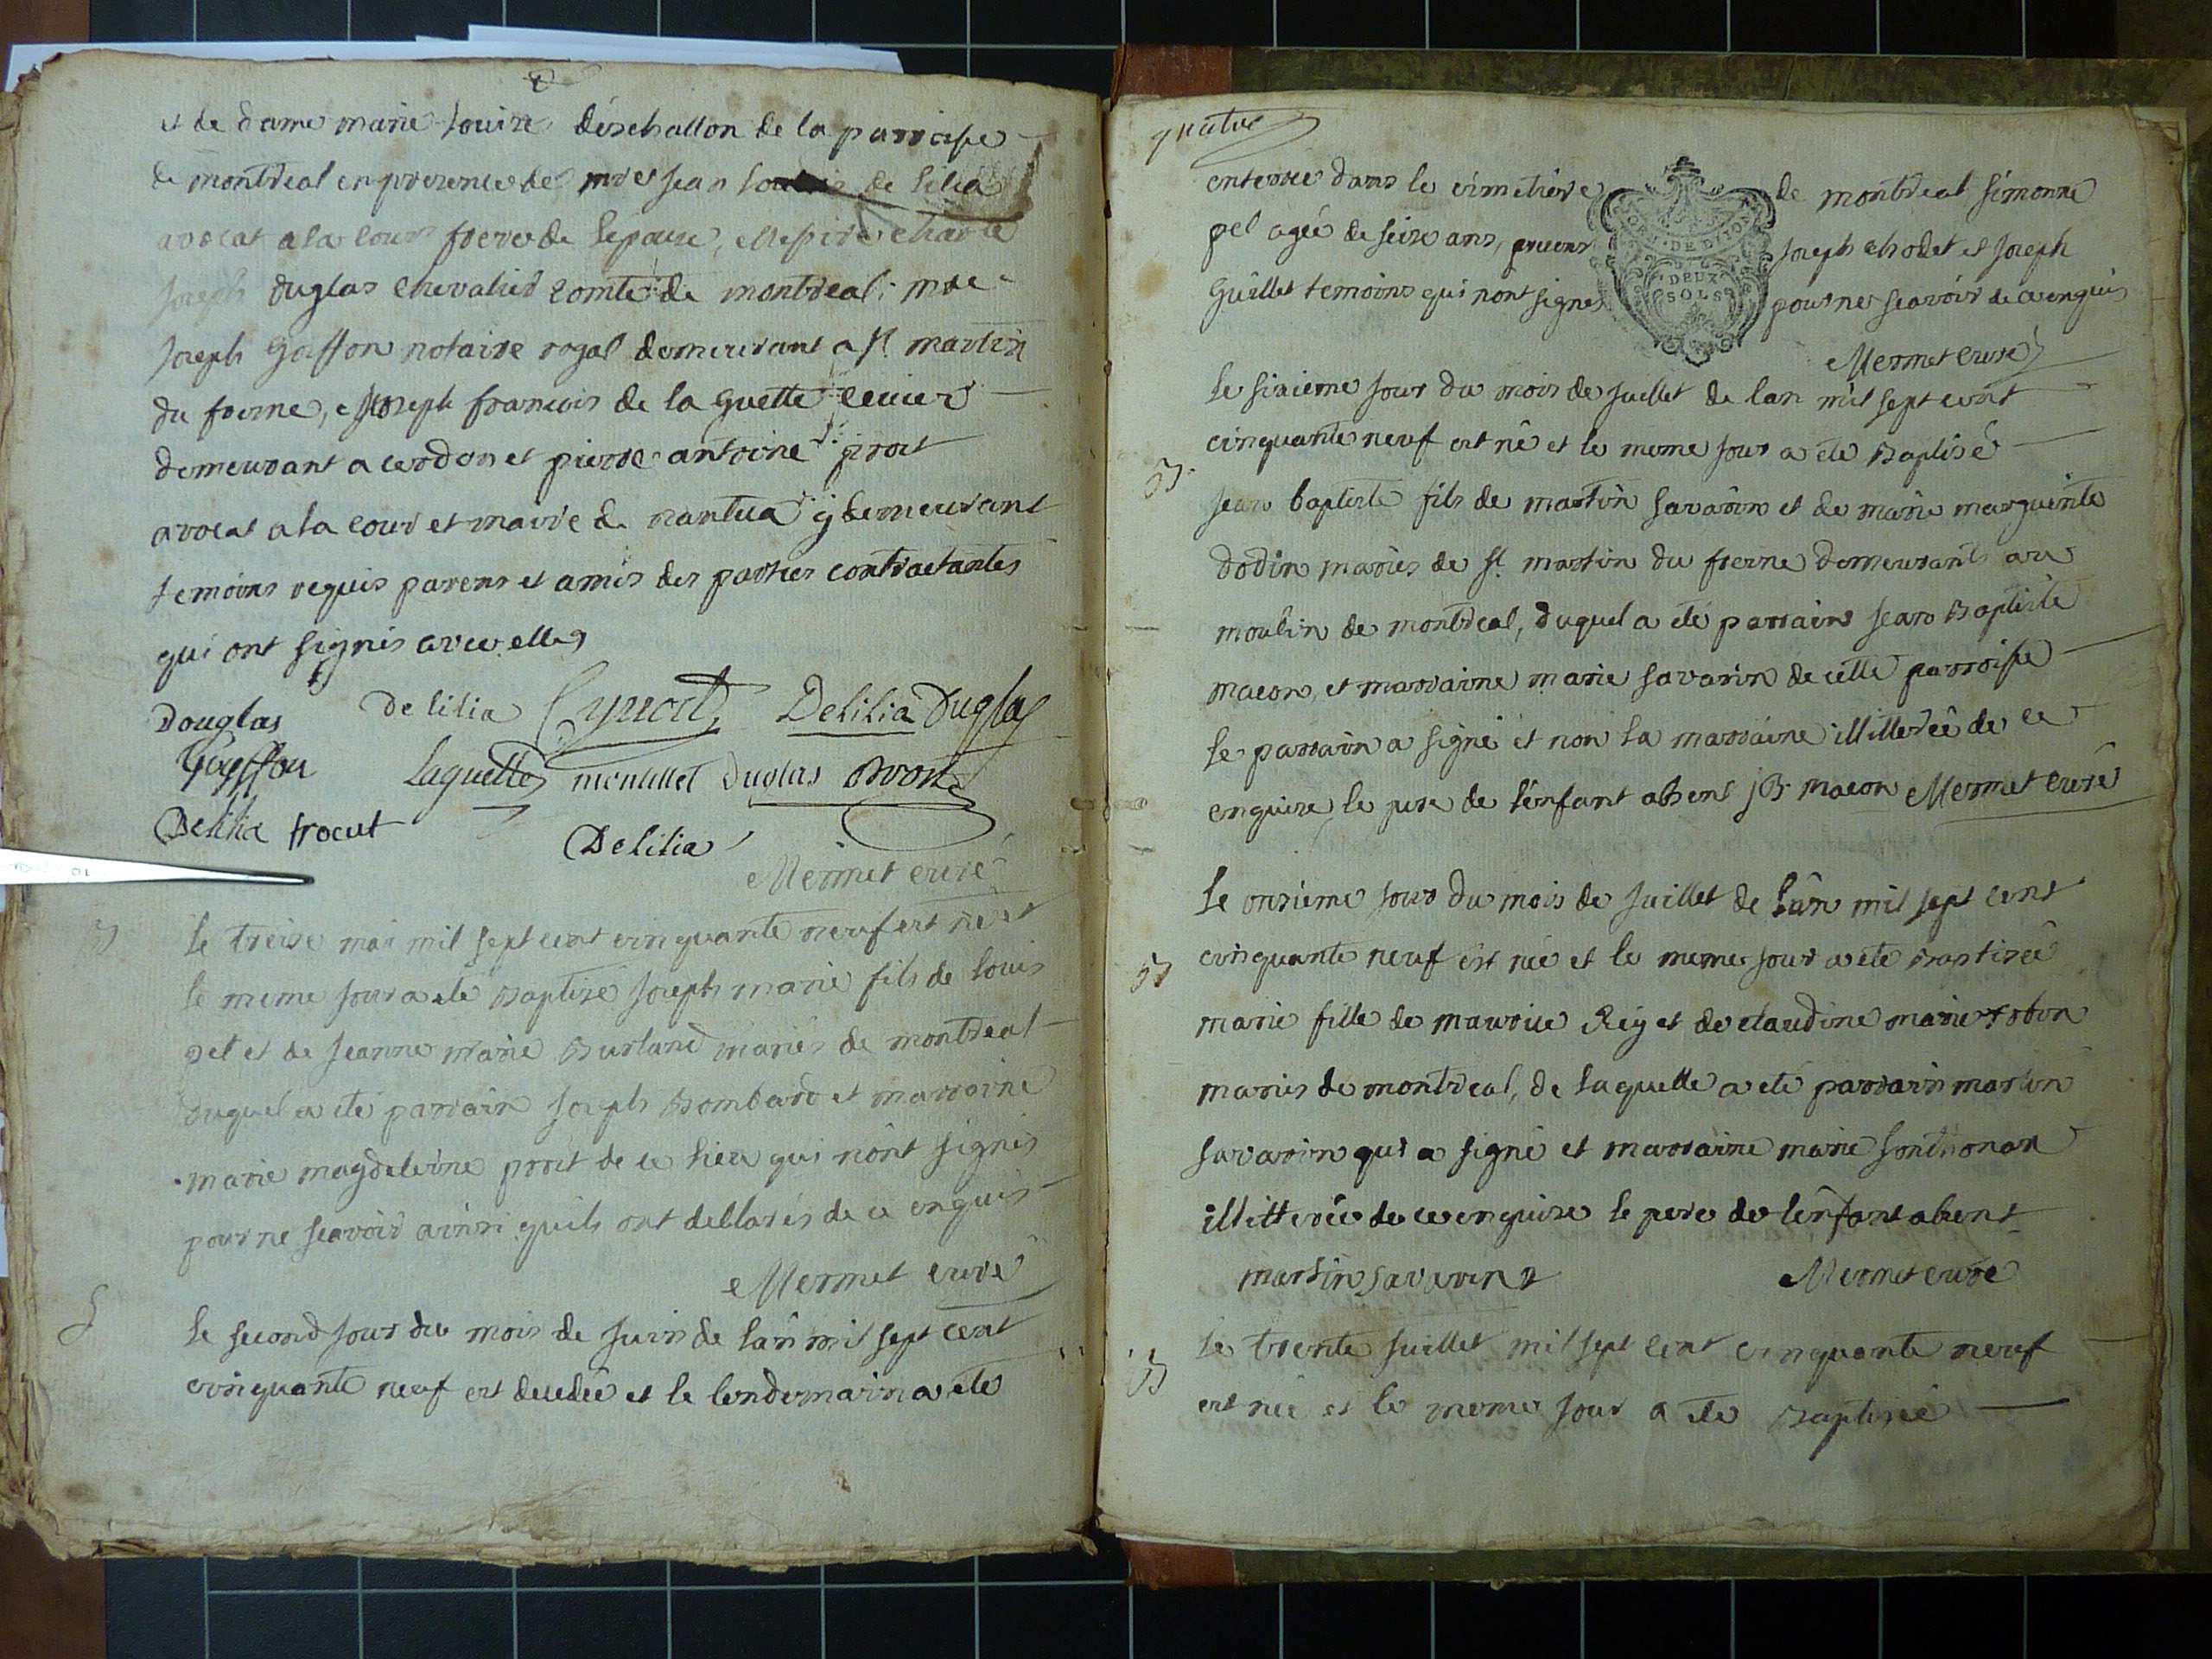 et de dame marie Louise déschallon de la parroisse
de montreal en presence de mre Jean de Lilia
avocat a la cour frere de Lepouse, Messire charle
Joseph duglas chevalier comte de montreal, mre
Joseph Goiffon notaire royal demeurant a St. martin
du fresne, Joseph francois de la Guette
demeurant a cerdon et pierre antoine prost
avocat a la cour et maire de nantua y demeurant
temoins requis parens et amis des parties contractantes
qui ont signés avec elles
Douglas Delilia Cynod Delilia Duglas
Goyffon Laguette montillet Duglas prost
Delilia frocut Delilia
Mermet curé
B
le treize mai mil sept cent cinquante neuf est né et
le meme jour a eté Baptisé Joseph marie fils de Louis
pel et de Jeanne marie Burland mariés de montreal
duquel a eté parrain Joseph Bombard et marraine
marie magdeleine prost de ce lieu qui n'ont signés
pour ne scavoir ainsi quils ont declarés de ce enquis
Mermet curé
S
le second jour du mois de Juin de lan mil sept cent
cinquante neuf est decedée et le lendemain a eté
quatre
enterrée dans le cimetiere de montreal simonne
pel agée de seize ans, presens Joseph chodet et Joseph
Guillet temoins qui nont signes pour ne scavoir de ce enquis
GEN. DE DIJON
DEUX
SOLS
Mermet curé
le sixieme jour du mois de Juillet de lan mil sept cent
cinquante neuf est né et le meme jour a eté Baptisé
B
Jean baptiste fils de martin savarin et de marie marguerite
dodin mariés de St. martin du fresne demeurants au
moulin de montreal, duquel a eté parrain Jean Baptiste
macon, et marraine marie savarin de cette parroisse
le parrain a signé et non la marraine illiterée de ce
enquise le pere de l'enfant absent JB macon Mermet curé
le onzieme jour du mois de Juillet de l'ân mil sept cent
cinquante neuf est née et le meme jour a eté Baptisée
B
marie fille de maurice Rey et de claudine marie robin
mariés de montreal, de laquelle a eté parrain martin
savarin qui a signé et marraine marie sonthonax
illitterée de ce enquise le pere de l'enfant absent
martin savarin Mermet curé
B
le trente Juillet mil sept cent cinquante neuf
est née et le meme jour a eté Baptisée